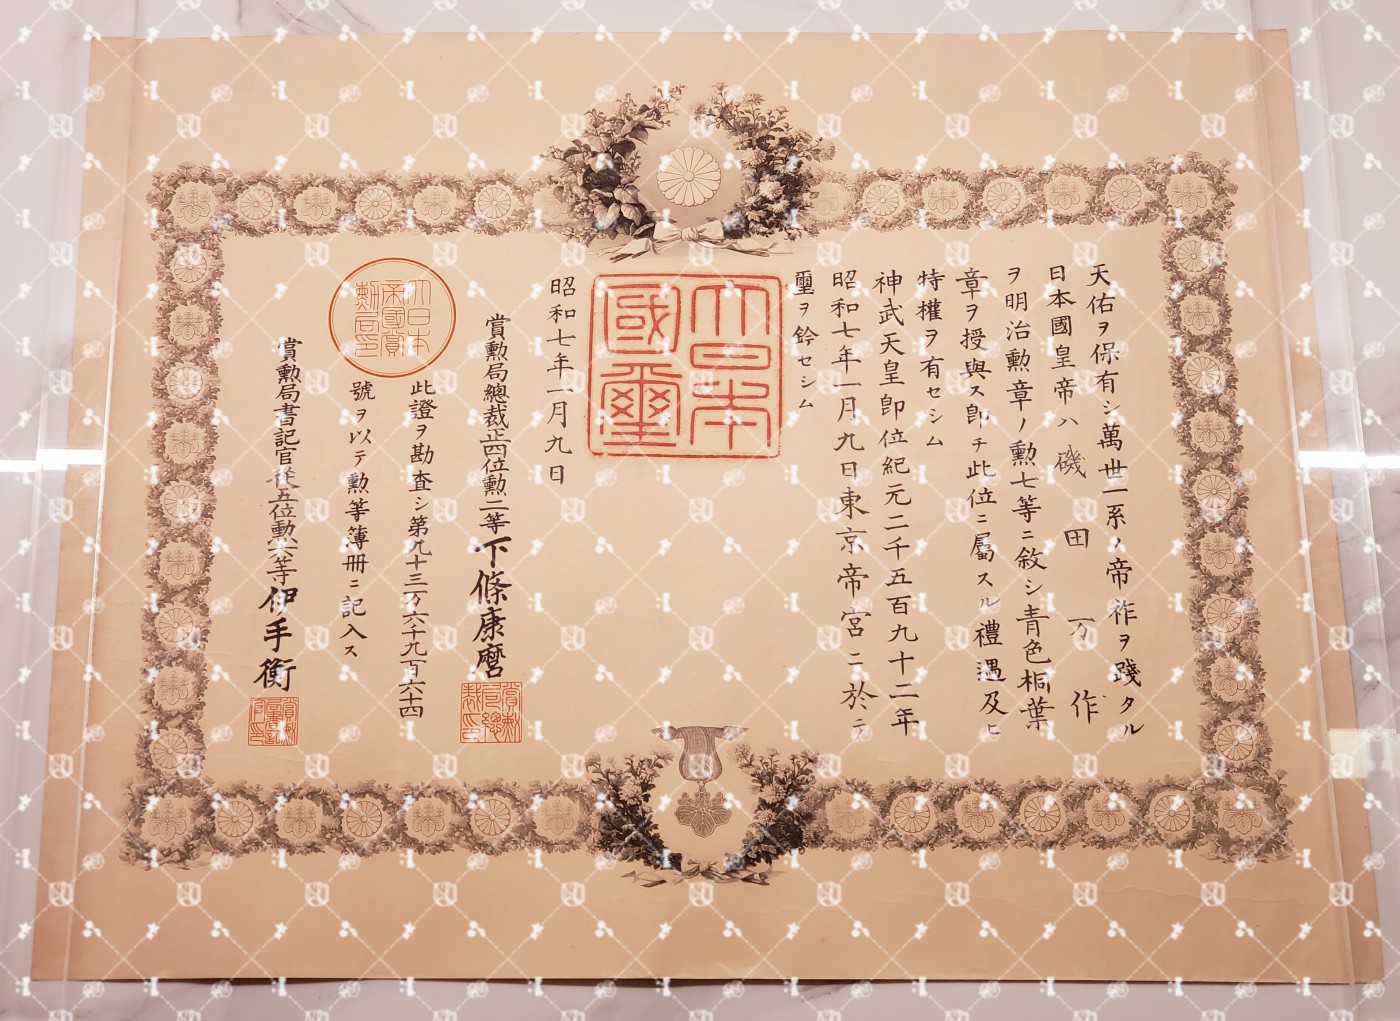 天佑ヲ保有シ萬世一系ノ帝祚ヲ踐タル
日本國皇帝ハ磯田一万作
ヲ明治勲章ノ勲七等ニ敘シ青色桐葉
章ヲ授與ス即チ此位ニ屬スル禮遇及ヒ
特權ヲ有セシム
神武天皇即位紀元二千五百九十二年
昭和七年一月九日東京帝宮ニ於テ
璽ヲ鈐セシム
大日本
國璽
昭和七年一月九日
賞勲局總裁正四位勲二等下條康麿
賞勲局總裁印
此證ヲ勘査シ第九十三万六千九百六十四
號ヲ以テ勲等簿冊ニ記入ス
大日本
帝國賞
勲局印
賞勲局書記官從五位勲六等伊手衡